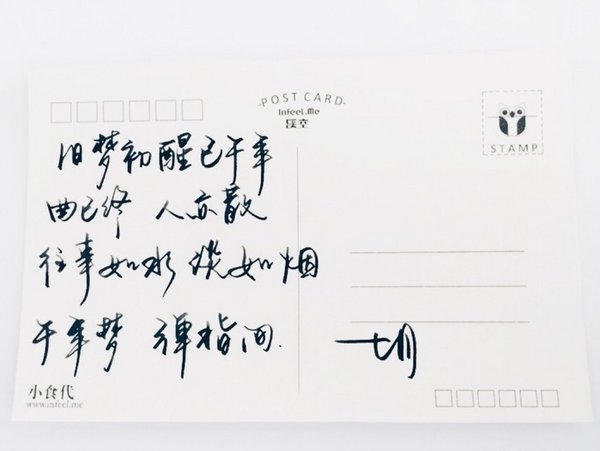 POST CARD
Infeel.Me
STAMP
旧梦初醒已千年
曲已终 人亦散
往事如水 淡如烟
千年梦 弹指间.
七月
小食代
www.infeel.me